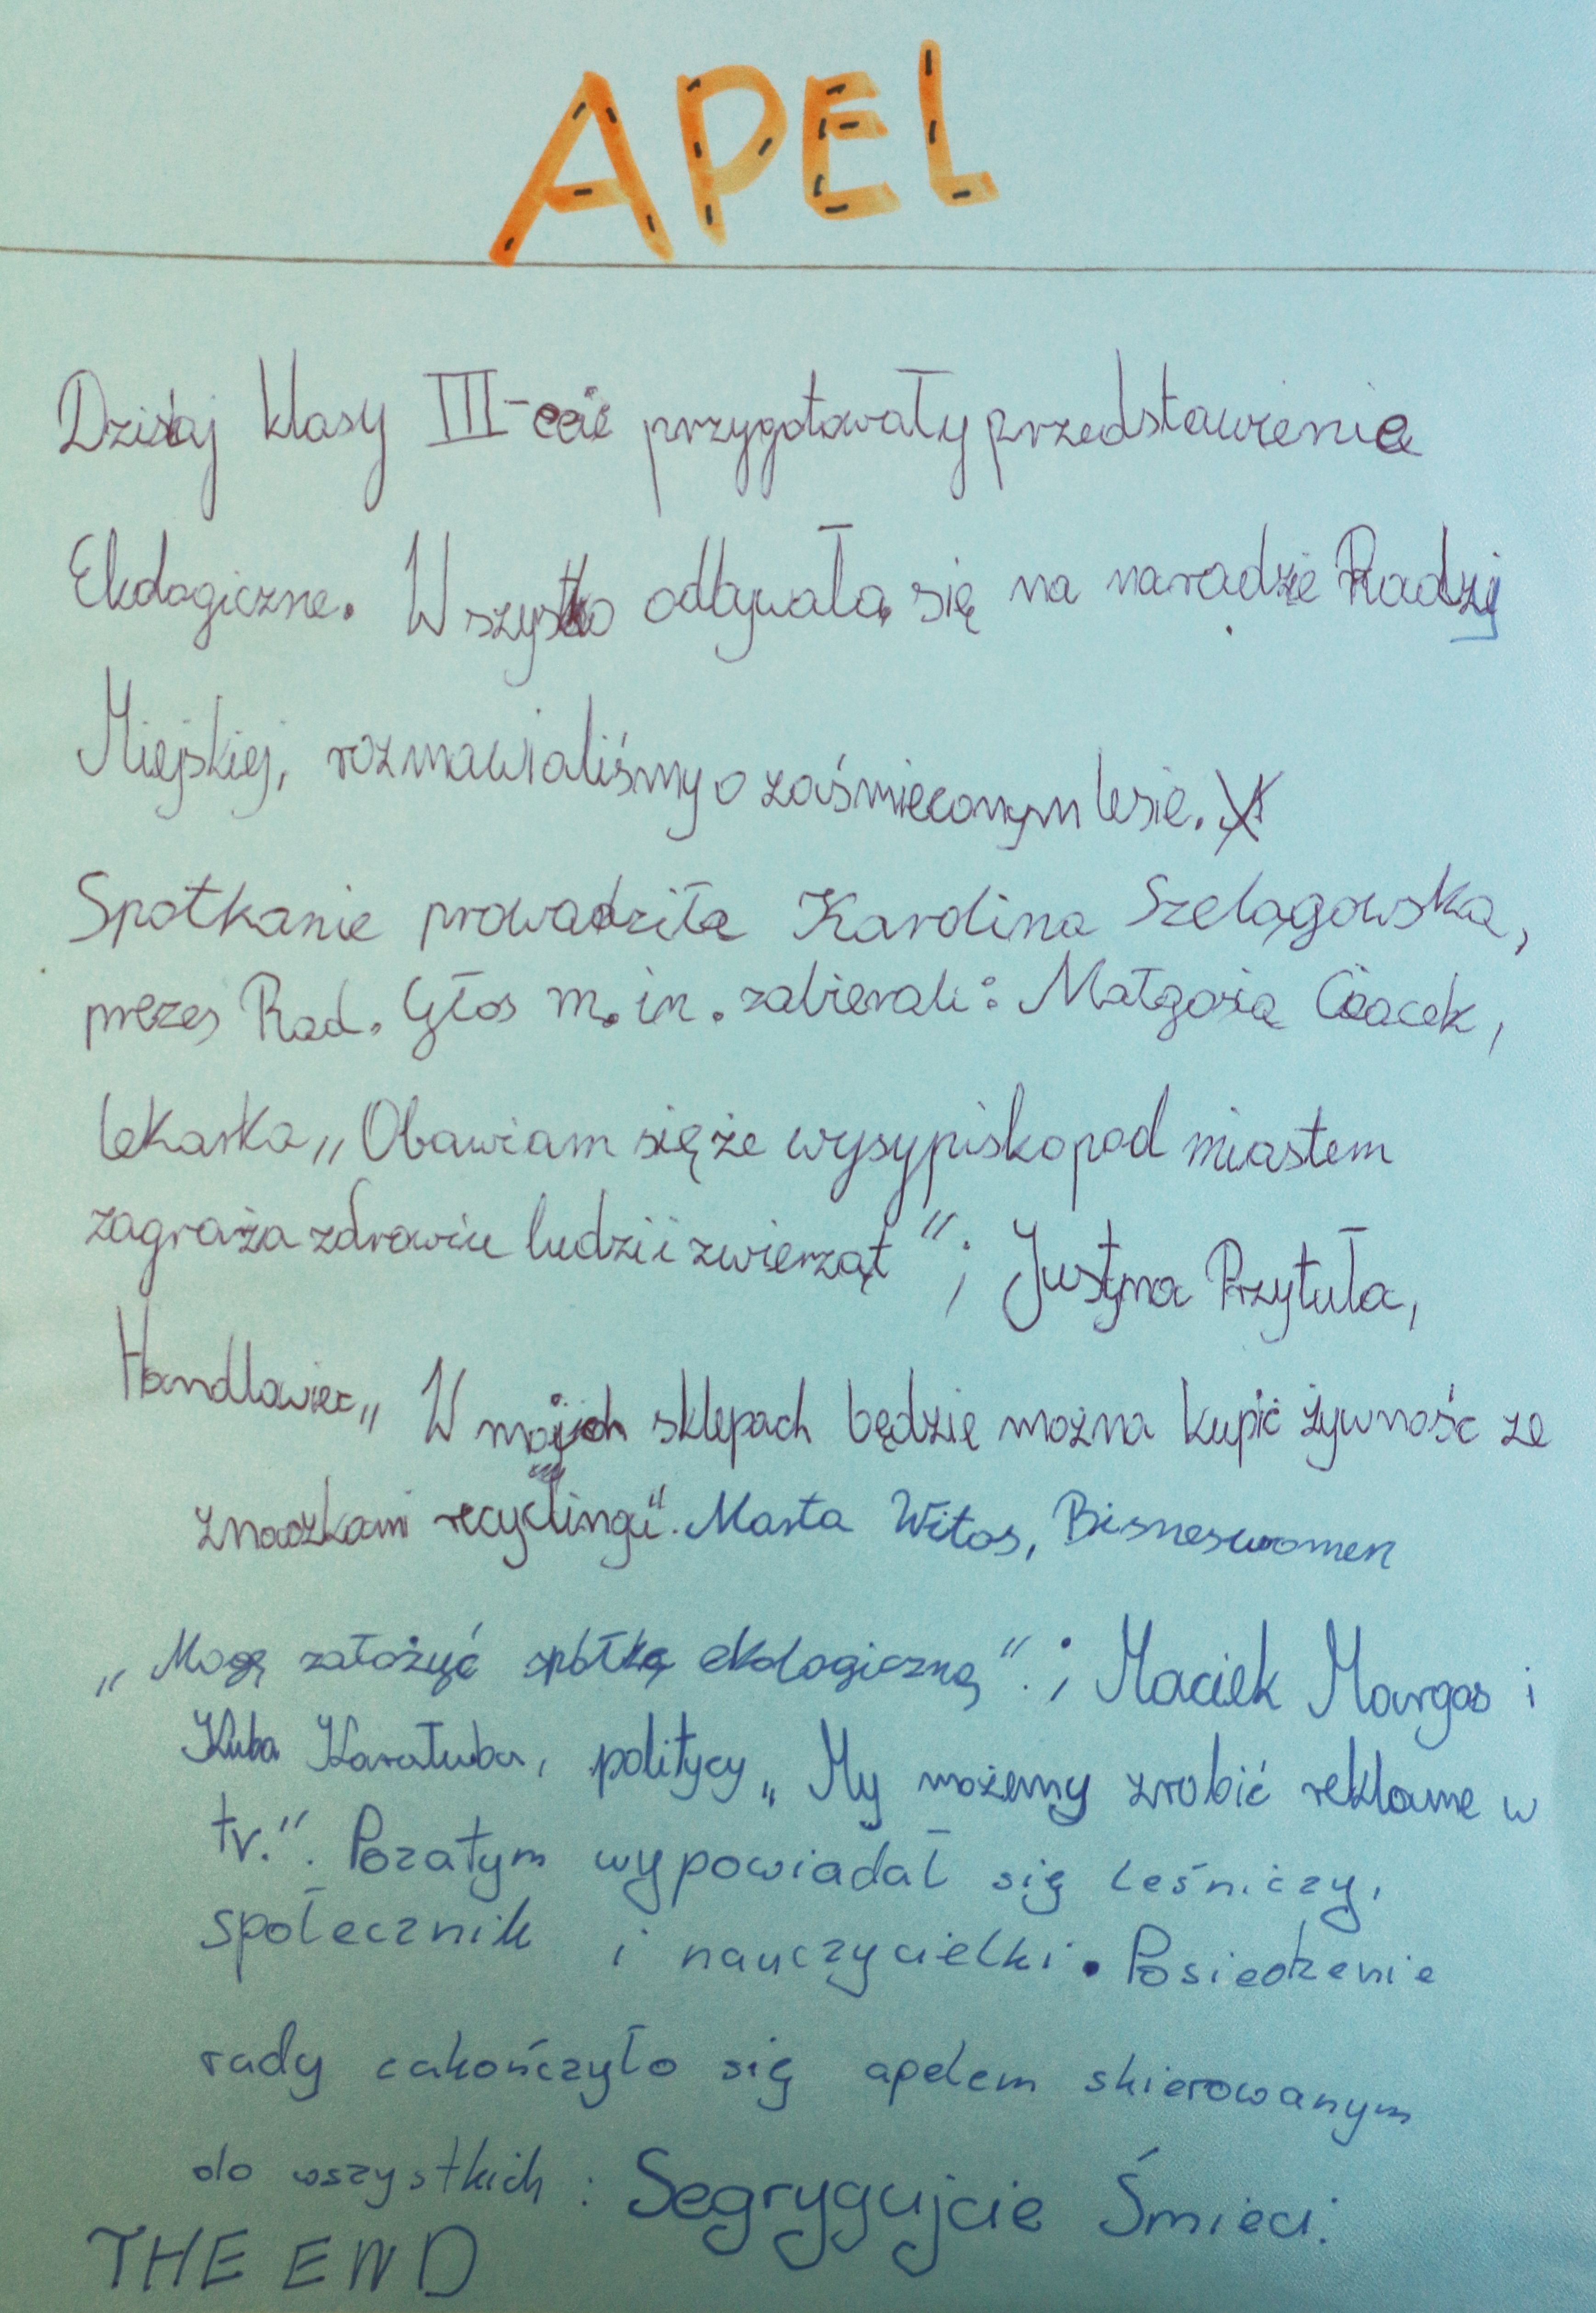 APEL
Dzisiaj klasy III-ecie przygotowały przedstawienie
Ekologiczne. Wszystko odbywała się na naradzie Radzy
Miejskiej, rozmawialiśmy o zaśmieconym lesie.
Spotkanie prowadziła Karolina Szelągowska,
prezes Rad. Głos m.in. zabierali: Małgosia
lekarka „Obawiam się że wysypisko pod miastem
zagraża zdrowiu ludzi i zwierząt"; Justyna Przytuła,
Handlowiec „W moijch sklepach będzie można kupić żywność ze
znaczkami recyclingu". Marta Witos, Bisneswomen
„Mogę założyć spółkę ekologiczną".; Maciek Margas i
Kuba Karałuba, politycy „My możemy zrobić reklame w
tv.". Pozatym wypowiadał się leśniczy,
społecznik i nauczycielki. Posiedzenie
rady zakończyło się apelem skierowanym
do wszystkich: Segrygujcie Śmieci.
THE END